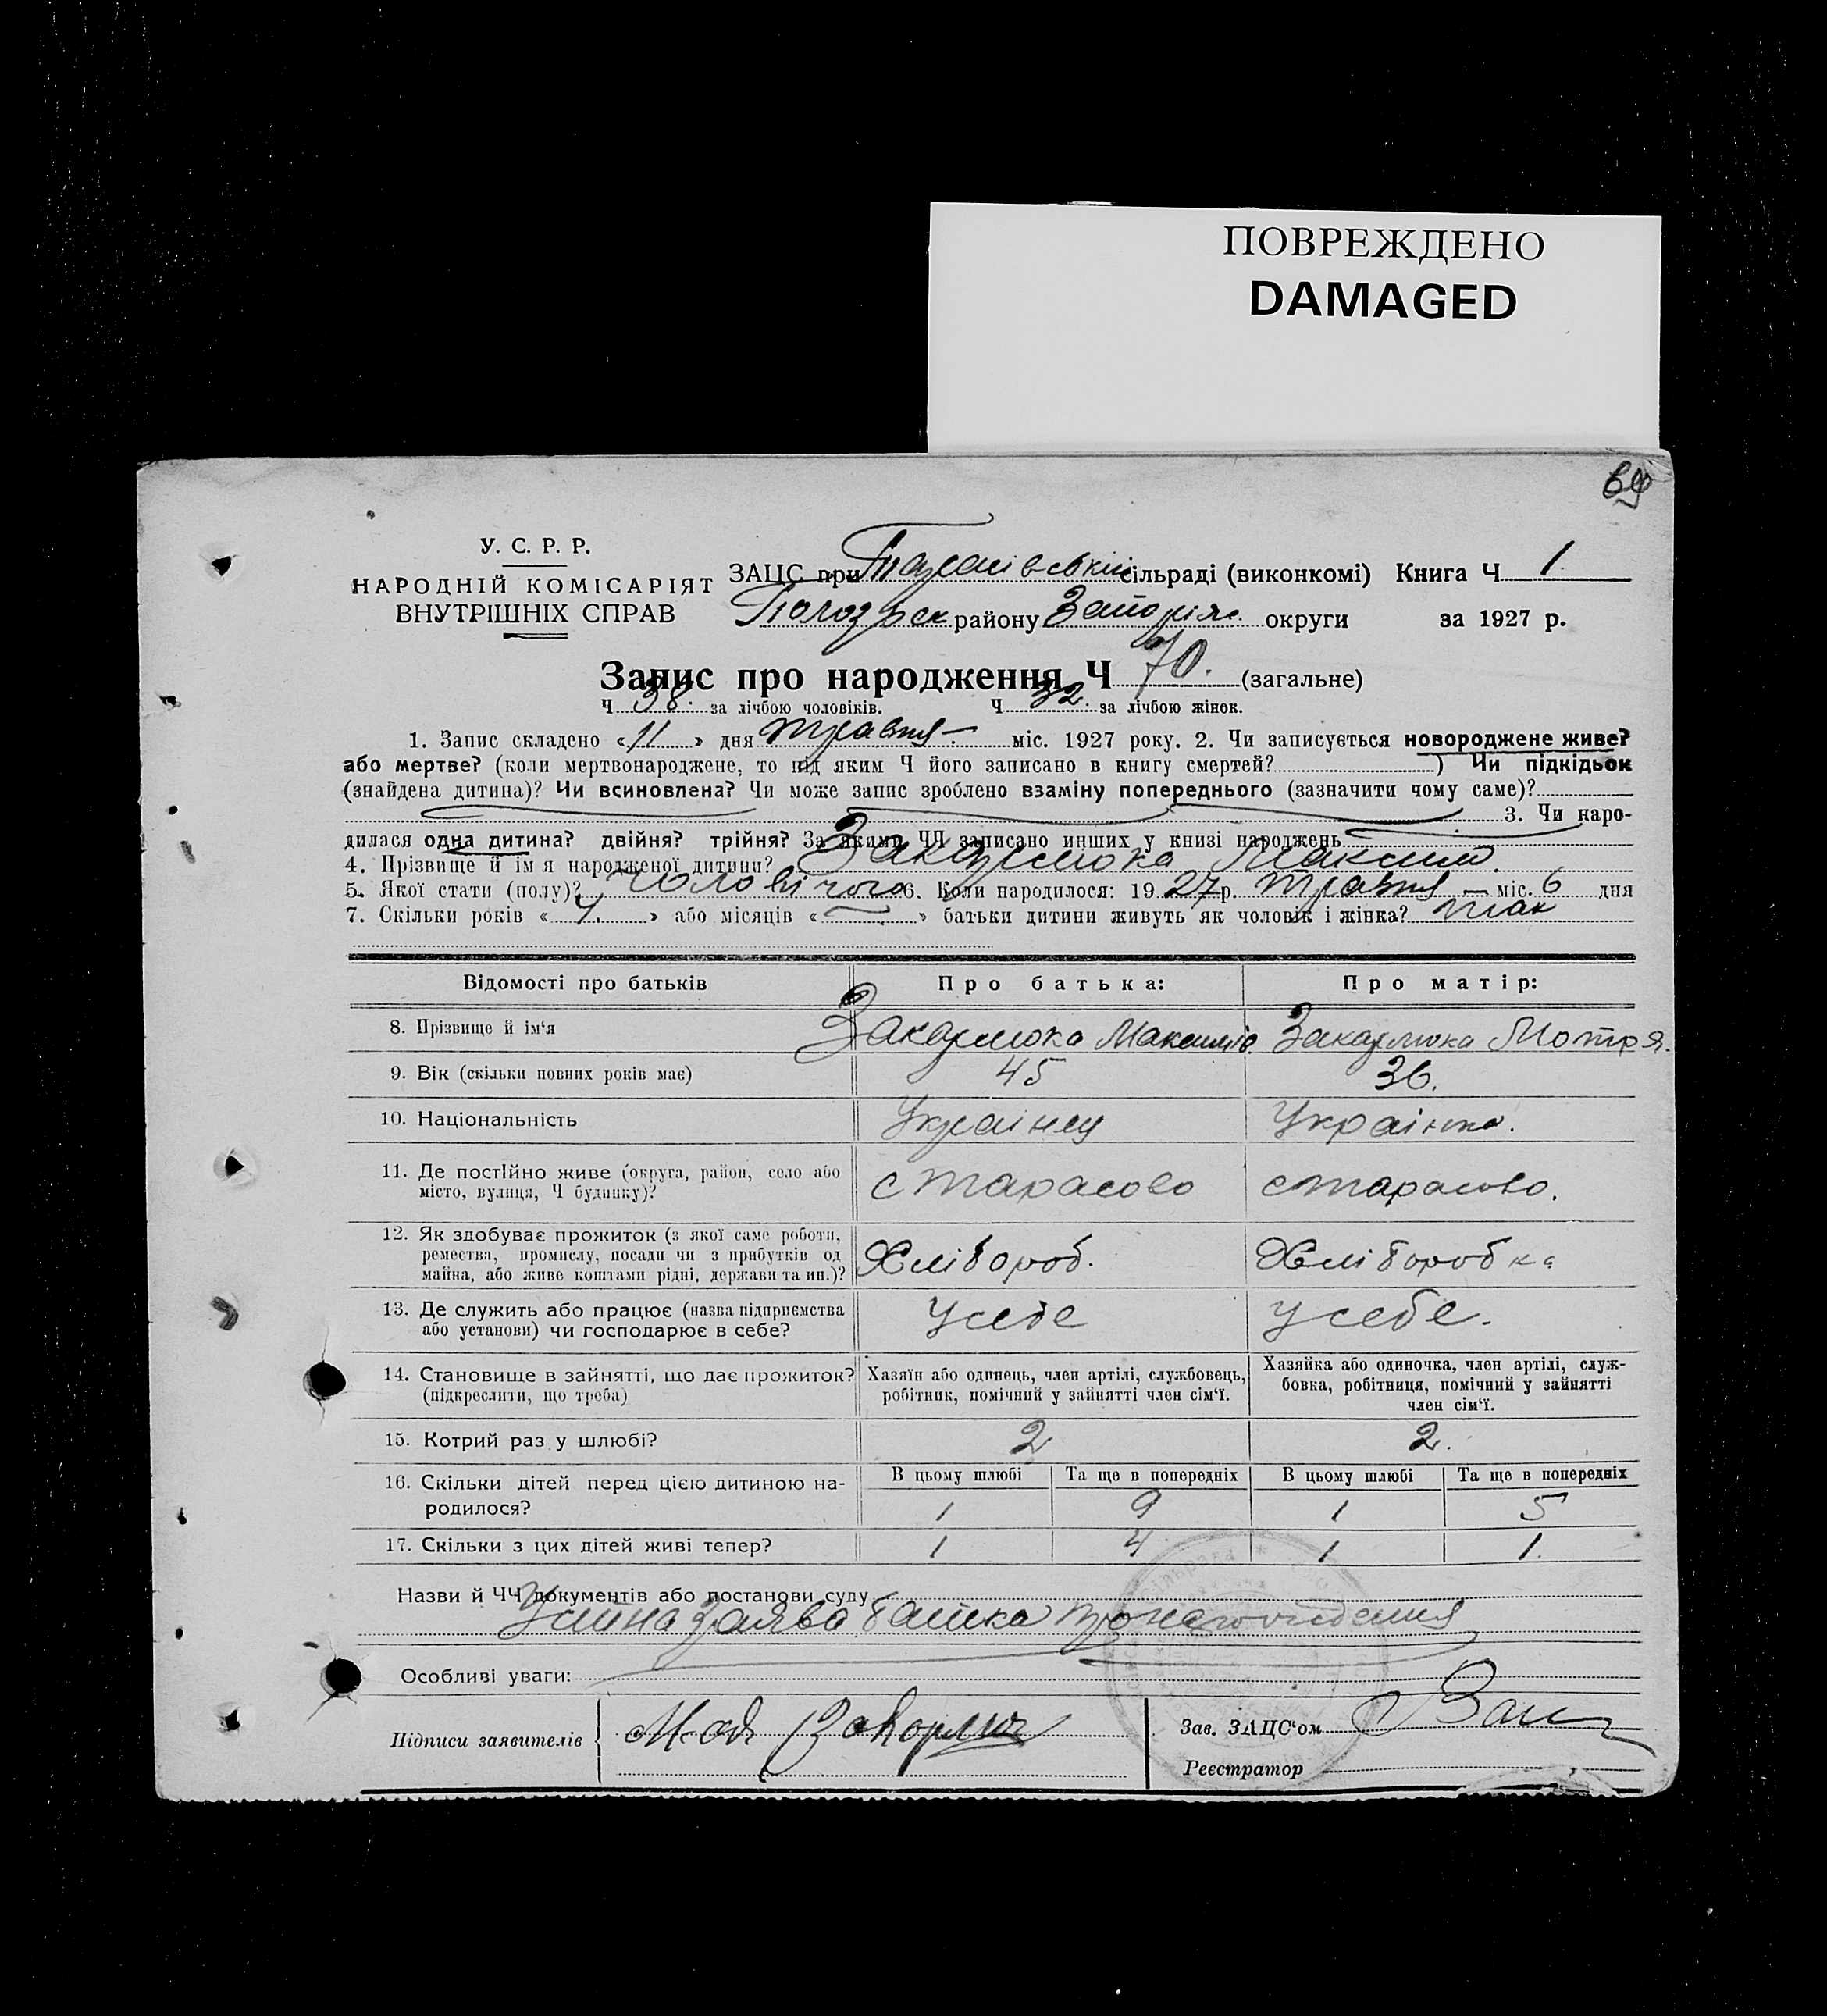 ПОВРЕЖДЕНО
DAMAGED
69
У. С. Р. Р.
НАРОДНІЙ КОМІСАРІЯТ
ВНУТРІШНІХ СПРАВ
ЗАЦС при сільраді (виконкомі) Книга Ч 1
району Запоріж. округи за 1927 р.
Запис про народження Ч 70. (загальне)
Ч 38. за лічбою чоловіків. Ч 32. за лічбою жінок.
1. Запис складено « 11 » дня травня - міс. 1927 року. 2. Чи записується новороджене живе?
або мертве? (коли мертвонароджене, то під яким Ч його записано в книгу смертей? ) Чи підкідьок
(знайдена дитина)? Чи всиновлена? Чи може запис зроблено взаміну попереднього (зазначити чому саме)?
3. Чи наро-
дилася одна дитина? двійня? трійня? За якими ЧЧ записано инших у книзі народжень
4. Прізвище й ім я народженої дитини? Закарлюка Максим.
5. Якої стати (полу)? Чоловічого 6. Коли народилося: 19 27 р. травня — міс. 6 дня
7. Скільки років « 4. » або місяців « — » батьки дитини живуть як чоловік і жінка? так
Відомості про батьків Про батька: Про матір:
8. Прізвище й ім‘я Закарлюка Закарлюка Мотря.
9. Вік (скільки повних років має) 45 36.
10. Національність Українец Українка.
11. Де постійно живе (округа, район, село або
місто, вулиця, Ч будинку)? с Тарасово с Тарасово.
12. Як здобуває прожиток (з якої саме роботи,
ремества, промислу, посади чи з прибутків од
майна, або живе коштами рідні, держави та ин.)? Хлібороб. Хліборобка
13. Де служить або працює (назва підприємства
або установи) чи господарює в себе? У себе У себе.
14. Становище в зайнятті, що дає прожиток?
(підкреслити, що треба)
Хазяїн або одинець, член артілі, службовець,
робітник, помічний у зайнятті член сім‘ї.
Хазяйка або одиночка, член артілі, служ-
бовка, робітниця, помічний у зайнятті
член сім‘ї.
15. Котрий раз у шлюбі? 2 2.
16. Скільки дітей перед цією дитиною на-
родилося?
В цьому шлюбі Та ще в попередніх В цьому шлюбі Та ще в попередніх
1 9 1 5
17. Скільки з цих дітей живі тепер? 1 4 1 1.
Назви й ЧЧ документів або постанови суду
Устна заява батька про народження
Особливі уваги:
Підписи заявителів
Зав. ЗАЦС‘ом
Реєстратор